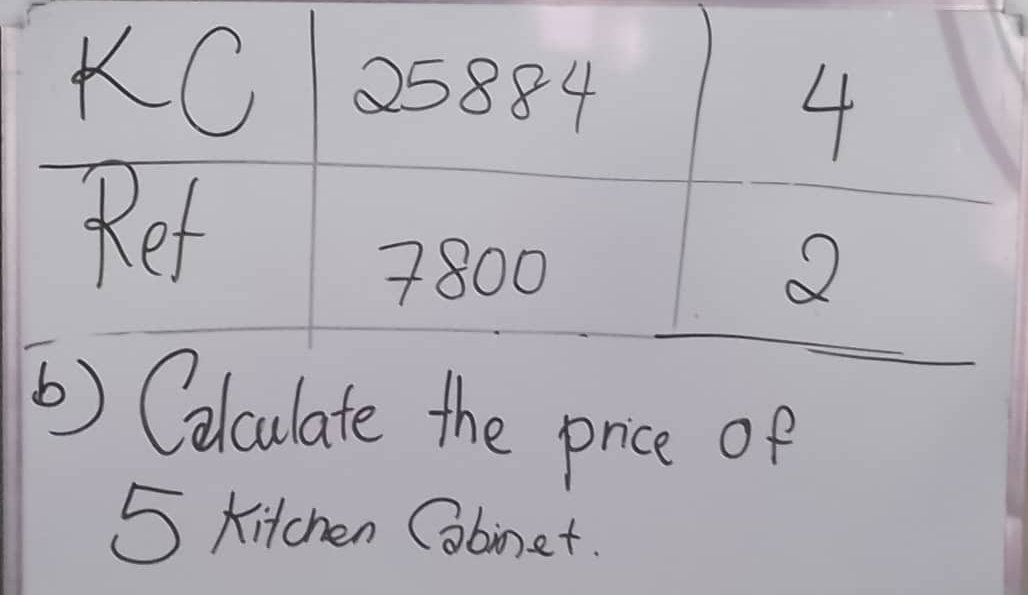 KC 25884 4
Ref 7800 2
b) Calculate the price of
5 Kitchen Cabinet.